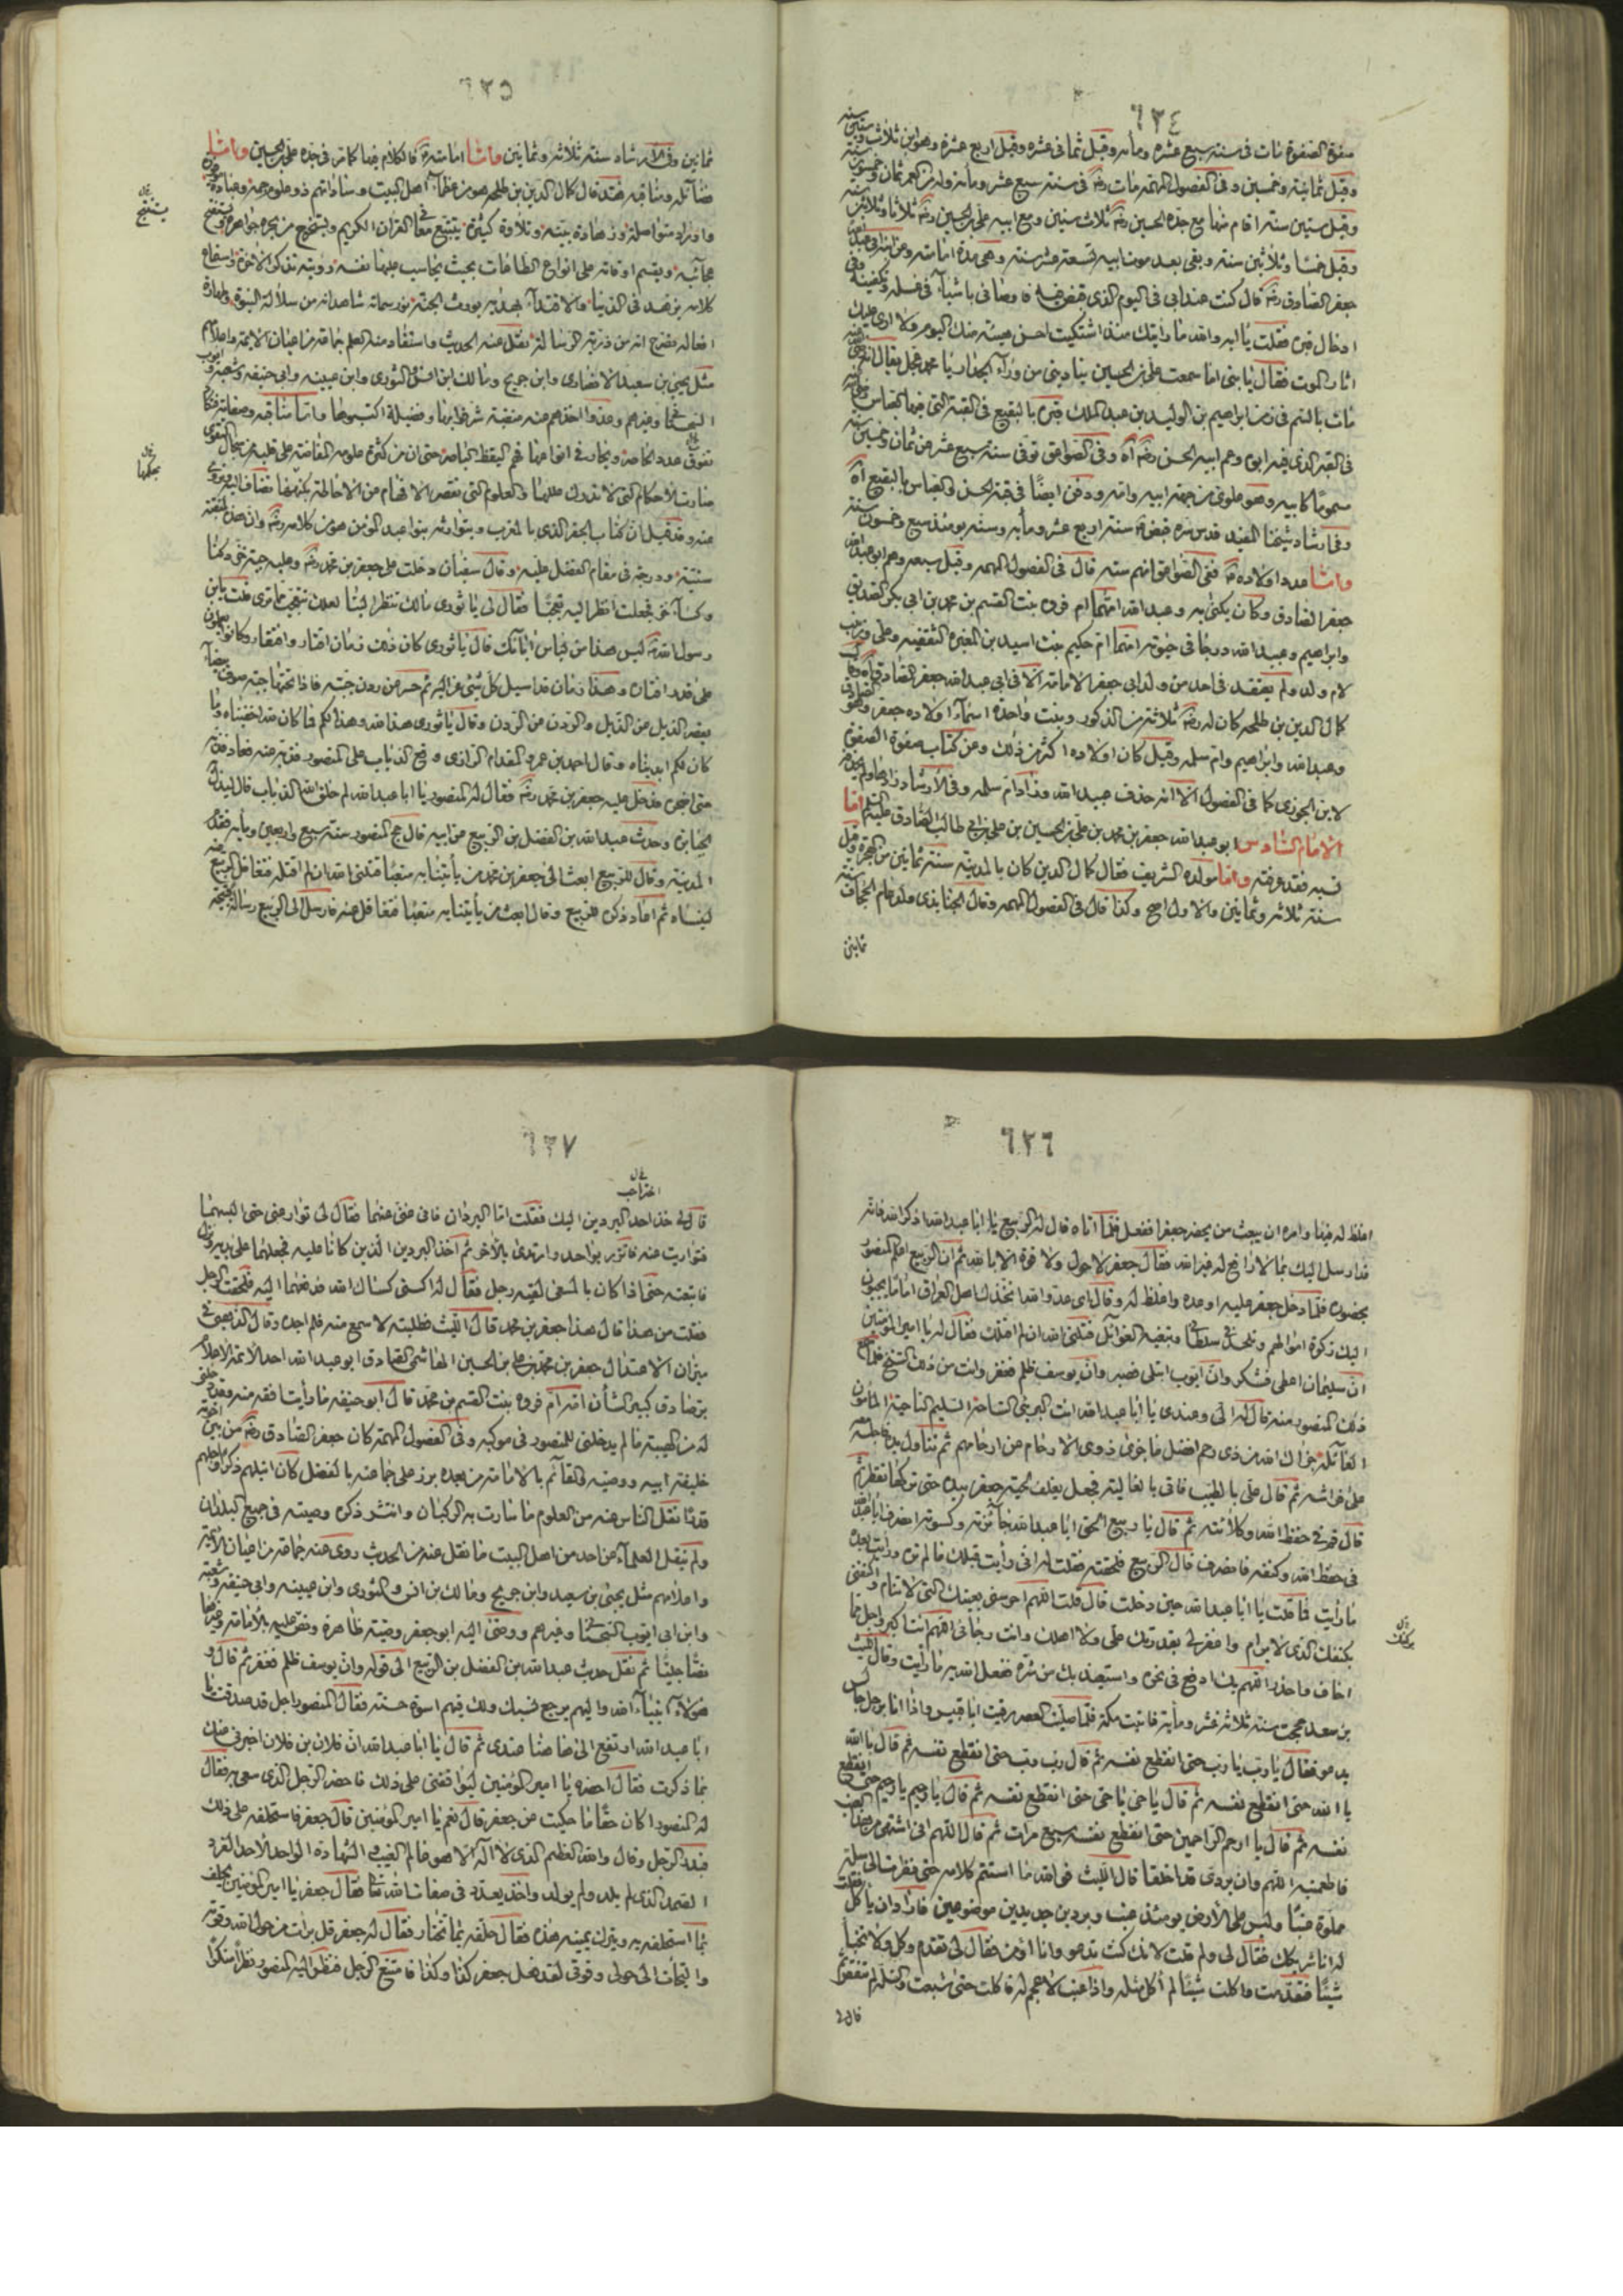 ٦٣٤
صفوة الصفوة مات فى سنة سبع عشره ومأه وقيل ثمانى عشره وقيل اربع عشره وهو ابن ثلاث وسبعين سنه
وقيل ثمانية وخمسين وفى الفصول المهمه مات رضه فى سنة سبع عشر ومأه وله من العمر ثمان وخمسون سنه
وقيل ستين سنة اقام منها مع جده الحسين رضه ثلاث سنين ومع ابيه على بن الحسين رضه ثلاثا وثلاثين سنه
وقيل خمسا وثلاثين سنة وبقى بعد موت ابيه تسعة عشر سنة وهى مدة امامته وعن ابى عبدالله
جعفر الصادق رضه قال كنت عند ابى فى اليوم الذى قبض فيه فاوصانى باشياء فى غسله وتكفينه وفى
ادخال قبره فقلت يا ابه والله ما رايتك منذ اشتكيت احسن هيئة منك اليوم ولا ارى عليك
اثار الموت فقال يا بنى اما سمعت على بن الحسين ينادينى من وراء الجدار يا محمد عجل يقال انه
مات بالسم فى زمن ابراهيم بن الوليد بن عبد الملك قبره بالبقيع فى القبة التى فيها العباس
فى القبر الذى فيه ابوه وعم ابيه الحسن رضه اه وفى الصواعق توفى سنة سبع عشر عن ثمان وخمسين سنه
مسموما كابيه وهو علوى من جهة ابيه وامه ودفن ايضا فى قبة الحسن والعباس بالبقيع اه
وفى ارشاد شيخنا المفيد قدس سره قبض سنة اربع عشر ومأيه وسنه يومئذ سبع وخمسون سنه
واما عدد اولاده ففى الصواعق انهم سته قال فى الفصول المهمه وقيل سبعه وهم ابو عبدالله
جعفر الصادق وكان يكنى به وعبدالله امهما ام فروه بنت القسم بن محمد بن ابى بكر الصديق
وابراهيم وعبيدالله درجا فى حيوته امهما ام حكيم بنت اسيد بن المغيره الثقفيه وعلى وزينب
لام ولد ولم يعتقد فى احد من ولد ابى جعفر الامامة الا فى ابى عبدالله جعفر الصادق
كمال الدين بن طلحه كان له رضه ثلاثة من الذكور وبنت واحده اسماء اولاده جعفر وهو الصادق
وعبدالله وابراهيم وام سلمه وقيل كان اولاده اكثر من ذلك وعن كتاب صفوة الصفوة
لابن الجوزى كما فى الفصول الا انه حذف عبيدالله وزاد ام سلمه وفى الارشاد
الامام السادس ابو عبدالله جعفر بن محمد بن على بن الحسين بن على بن ابى طالب الصادق عليهم السلم اما
نسبه فقد عرفته واما مولده الشريف فقال كمال الدين كان بالمدينة سنة ثمانين من الهجرة وقيل
سنة ثلاثه وثمانين والاول اصح وكذا قال فى الفصول المهمه وقال الجنابذى ولد عام الجحاف سنة
ثمانين
٦٣٥
ثمانين وفى الارشاد سنة ثلاثه وثمانين واما امامته فالكلام فيها كما مر فى جده على بن الحسين واما
فضائله ومناقبه فقد قال كمال الدين بن طلحه هو من عظماء اهل البيت وساداتهم ذو علوم جمه وعبادة موفره
واوراد متواصلة وزهادة بينه وتلاوة كثيرة يتتبع معانى القران الكريم ويستخرج من بحره جواهره ويستنتج
عجائبه ويقسم اوقاته على انواع الطاعات بحيث يحاسب عليها نفسه ورؤيته تذكر الاخرة واستماع
كلامه يزهد فى الدنيا والاقتداء بهديه يورث الجنة نور سماته شاهد انه من سلالة النبوة وطهارة
افعاله تصدع انه من ذرية الرسالة نقل عنه الحديث واستفاد منه العلم جماعة من اعيان الائمة واعلامهم
مثل يحيى بن سعيد الانصارى وابن جريج ومالك ابن انس والثورى وابن عيينه وابى حنيفه وشعبه وايوب
السختيانى وغيرهم وعدوا اخذهم عنه منقبة شرفوا بها وفضيلة اكتسبوها واما مناقبه وصفاته فتكاد
تفوق عدد الحاصر ويحار فى انواعها فهم اليقظ الباصر حتى ان من كثرة علومه المفاضة على قلبه من سجال التقوى
صارت الاحكام التى لا تدرك عللها والعلوم التى تقصر الافهام عن الاحاطة بحكمها تضاف اليه وتروى
عنه وقد قيل ان كتاب الجفر الذى بالمغرب ويتوارثه بنو عبد المؤمن هو من كلامه رضه وان هذه لمنقبة
سنية ودرجة فى مقام الفضل عليه وقال سفيان دخلت على جعفر بن محمد رضه وعليه جبة خز دكنا
وكساء خز فجعلت انظر اليه تعجبا فقال لى يا ثورى مالك تنظر الينا لعلك تتعجب مما ترى فقلت يابن
رسول الله ليس هذا من لباس ابائك قال يا ثورى كان ذلك زمان اقتار وافتقار وكانوا يعملون
على قدر اقتاره وهذا زمان قد اسبل كل شئ عزاليه ثم حسر عن ردن جبته فاذا تحتها جبة صوف بيضاء
يقصر الذيل عن الذيل والردن عن الردن وقال يا ثورى هذا لله وهذا لكم فما كان لله اخفيناه وما
كان لكم ابديناه وقال احمد بن عمرو المقدام الرازى وقع الذباب على المنصور فذبه عنه فعاد فذبه
حتى اضجره فدخل عليه جعفر بن محمد رضه فقال له المنصور يا ابا عبدالله لم خلق الله الذباب قال ليذل به
الجبابرة وحدث عبدالله بن الفضل بن الربيع عن ابيه قال حج المنصور سنة سبع واربعين ومأيه فقدم
المدينة وقال للربيع ابعث الى جعفر بن محمد من يأتينا به متعبا قتلنى الله ان لم اقتله فتغافل الربيع عنه
لينساه ثم اعاد ذكره للربيع وقال ابعث من ياتينا به متعبا فتغافل عنه فارسل الى الربيع رسالة قبيحة
يستنتج
بحكمها
٦٣٦
اغلظ له فيها وامره ان يبعث من يحضر جعفرا ففعل فلما اتاه قال له الربيع يا ابا عبدالله اذكر الله فانه
قد ارسل اليك بما لا دافع له غير الله فقال جعفر لا حول ولا قوة الا بالله ثم ان الربيع اعلم المنصور
بحضوره فلما دخل جعفر عليه اوعده واغلظ له وقال اى عدو الله اتخذك اهل العراق اماما يجبون
اليك زكوة اموالهم وتلحد فى سلطانى وتبغيه الغوائل قتلنى الله ان لم اقتلك فقال له يا امير المؤمنين
ان سليمان اعطى فشكر وان ايوب ابتلى فصبر وان يوسف ظلم فغفر وانت من ذلك السنخ فلما سمع
ذلك المنصور منه قال له الى وعندى يا ابا عبدالله انت البرئ الساحة السليم الناحية المأمون
الغائلة جزاك الله من ذى رحم افضل ما جزى ذوى الارحام عن ارحامهم ثم تناول يده فاجلسه معه
على فراشه ثم قال على بالطيب فاتى بالغالية فجعل يغلف لحية جعفر بيده حتى تركها تقطر ثم
قال قم فى حفظ الله وكلائته ثم قال يا ربيع الحق ابا عبدالله جائزته وكسوته انصرف ابا عبدالله
فى حفظ الله وكنفه فانصرف قال الربيع فلحقته فقلت له انى رأيت قبلك ما لم تره ورأيت بعدك
ما رأيت فما قلت يا ابا عبدالله حين دخلت قال قلت اللهم احرسنى بعينك التى لا تنام واكنفنى
بكنفك الذى لا يرام واغفر لى بقدرتك على ولا اهلك وانت رجائى اللهم انت اكبر واجل مما
اخاف واحذر اللهم بك ادفع فى نحره واستعيذ بك من شره ففعل الله بى ما رأيت وقال الليث
بن سعد حججت سنة ثلاثة عشر ومأية فاتيت مكة فلما صليت العصر رقيت ابا قبيس واذا انا برجل جالس
يدعو فقال يا رب يا رب حتى انقطع نفسه ثم قال رب رب حتى انقطع نفسه ثم قال يا الله
يا الله حتى انقطع نفسه ثم قال يا حى يا حى حتى انقطع نفسه ثم قال يا رحيم يا رحيم حتى انقطع
نفسه ثم قال يا ارحم الراحمين حتى انقطع نفسه سبع مرات ثم قال اللهم انى اشتهى من هذا العنب
فاطعمنيه اللهم وان بردى قد اخلقا قال الليث فوالله ما استتم كلامه حتى نظرت الى سلة
مملوة عنبا وليس على الارض يومئذ عنب وبردين جديدين موضوعين فاراد ان ياكل فقلت
له انا شريكك فقال لى ولم قلت لانك كنت تدعو وانا اؤمن فقال لى تقدم وكل ولا تخبأ
شيئا فتقدمت واكلت شيئا لم أكل مثله واذا عنب لا عجم له فاكلت حتى شبعت والسلة لم تنقص ثم
قال لى
بركنك
٦٣٧
احب
قال لى خذ احد البردين اليك فقلت اما البردان فانى غنى عنهما فقال لى توار عنى حتى البسهما
فتواريت عنه فاتزر بواحد وارتدى بالاخر ثم اخذ البردين الذين كانا عليه فجعلهما على يده ونزل
فاتبعته حتى اذا كان بالمسعى لقيه رجل فقال له اكسنى كساك الله فدفعهما اليه فلحقت الرجل
فقلت من هذا قال هذا جعفر بن محمد قال الليث فطلبته لاسمع منه فلم اجده وقال الذهبى فى
ميزان الاعتدال جعفر بن محمد بن على بن الحسين الهاشمى الصادق ابو عبدالله احد الائمة الاعلام
بر صادق كبير الشأن امه ام فروه بنت القسم بن محمد قال ابو حنيفه ما رأيت افقه منه وقد دخلنى
له من الهيبة ما لم يدخلنى للمنصور فى موكبه وفى الفصول المهمة كان جعفر الصادق رضه من بين اخوته
خليفة ابيه ووصيه والقائم بالامامة من بعده برز على جماعته بالفضل كان انبلهم ذكرا واجلهم
قدرا نقل الناس عنه من العلوم ما سارت به الركبان وانتشر ذكره وصيته فى جميع البلدان
ولم ينقل العلماء عن احد من اهل البيت ما نقل عنه من الحديث روى عنه جماعة من اعيان الائمة
واعلامهم مثل يحيى بن سعيد وابن جريج ومالك بن انس والثورى وابن عيينه وابى حنيفه وشعبه
وابن ابى ايوب السختيانى وغيرهم ووصى اليه ابو جعفر وصية ظاهرة ونص عليه بالامامة
نصا جليا ثم نقل حديث عبدالله بن الفضل بن الربيع الى قوله وان يوسف ظلم فغفر ثم قال و
هؤلاء انبياء الله واليهم يرجع نسبك ولك فيهم اسوة حسنة فقال المنصور اجل قد صدقت يا
ابا عبدالله ارتفع الى هاهنا عندى ثم قال يا ابا عبدالله ان فلان بن فلان اخبرنى عنك
بما ذكرت فقال احضره يا امير المؤمنين ليوافقنى على ذلك فاحضر الرجل الذى سعى به فقال
له المنصور اكان حقا ما حكيت عن جعفر قال نعم يا امير المؤمنين قال جعفر فاستحلفه على ذلك
فبدر الرجل وقال والله العظيم الذى لا اله الا هو عالم الغيب والشهادة الواحد الاحد الفرد
الصمد الذى لم يلد ولم يولد واخذ يعدد فى صفات الله تعالى فقال جعفر يا امير المؤمنين يحلف
بما استحلفه به ويترك يمينه هذه فقال حلفه بما تختار فقال له جعفر قل برئت من حول الله وقوته
والتجات الى حولى وقوتى لقد فعل جعفر كذا وكذا فامتنع الرجل فنظر اليه المنصور نظرا منكرا